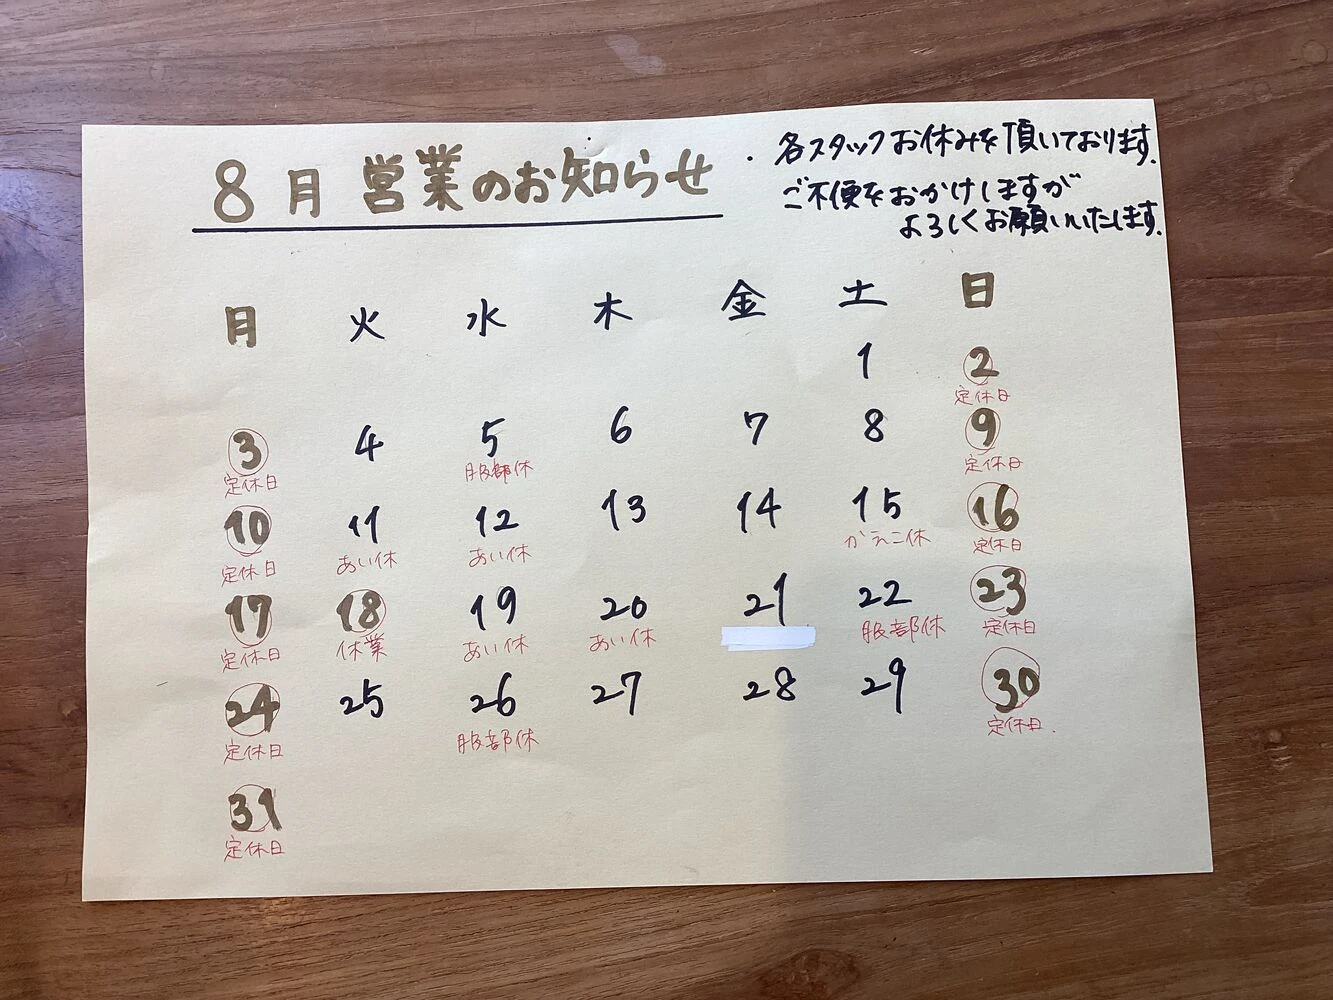 8月 営業のお知らせ
・各スタッフお休みを頂いております。
ご不便をおかけしますが
よろしくお願いいたします。
月 火 水 木 金 土 日
1 2
定休日
3 4 5 6 7 8 9
定休日 服部休 定休日
10 11 12 13 14 15 16
定休日 あい休 あい休 かえこ休 定休日
17 18 19 20 21 22 23
定休日 休業 あい休 あい休 服部休 定休日
24 25 26 27 28 29 30
定休日 服部休 定休日.
31
定休日